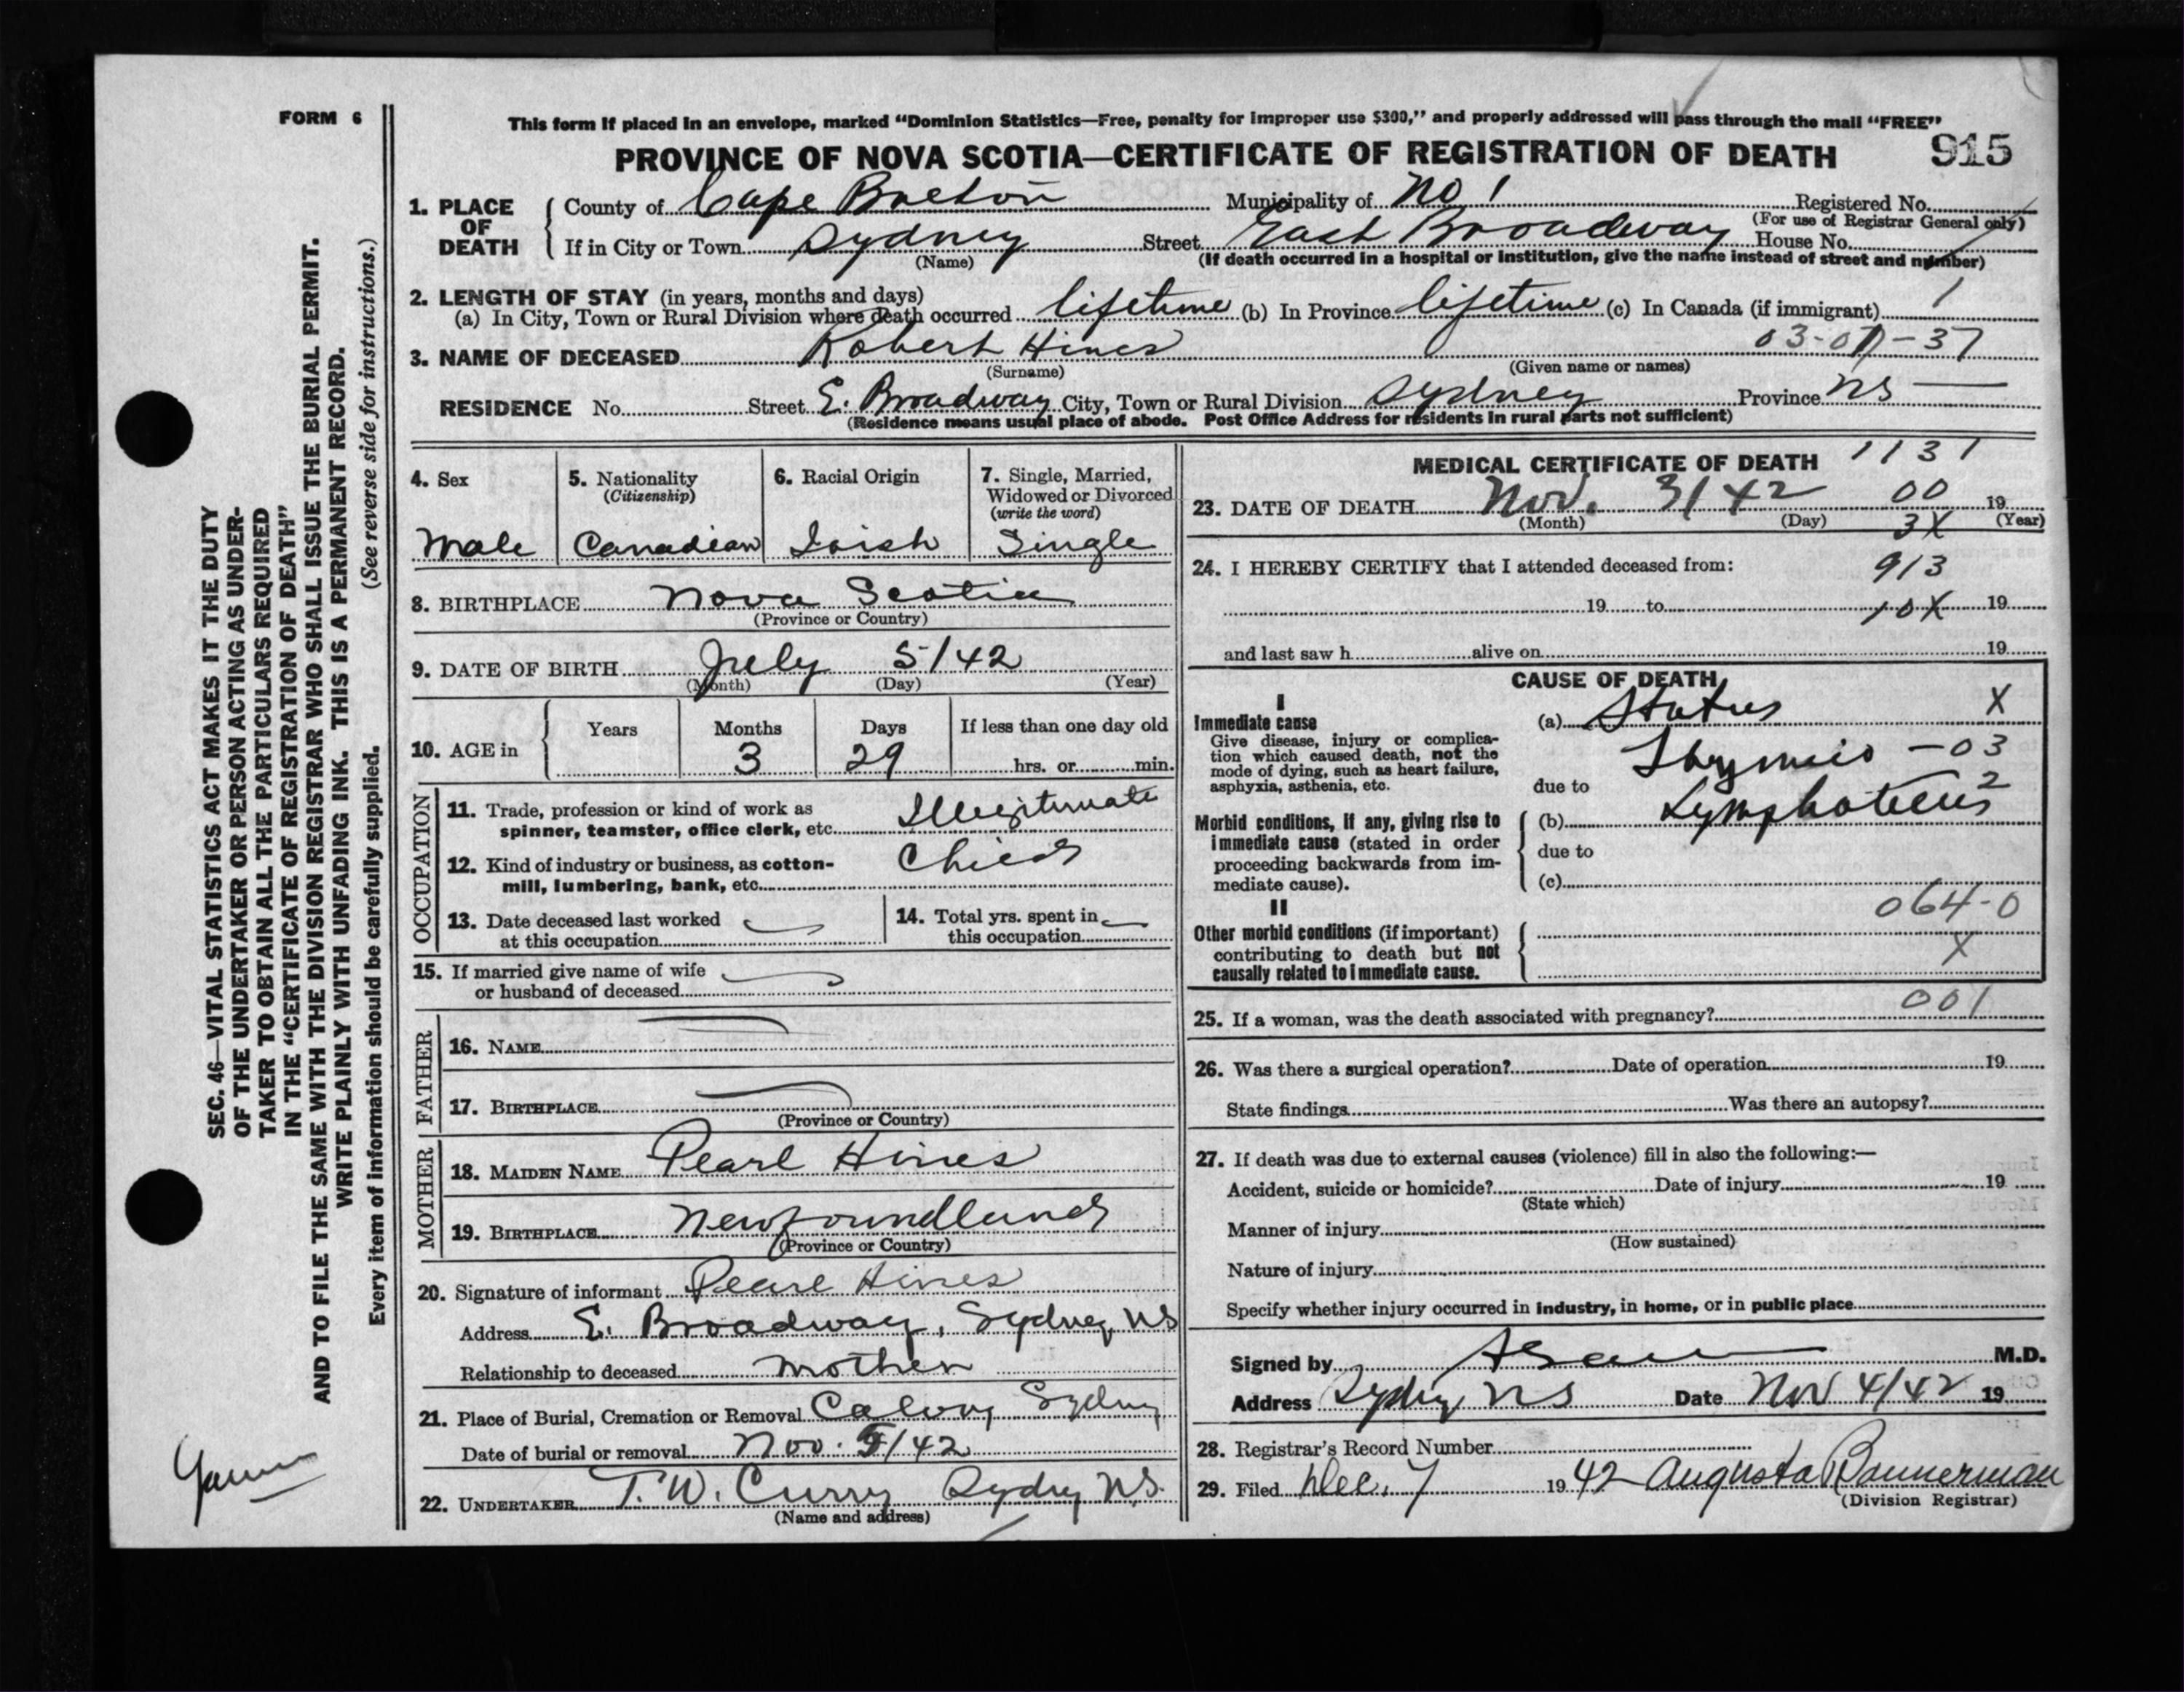 FORM 6
This form if placed in an envelope, marked “Dominion Statistics—Free, penalty for improper use $300,” and properly addressed will pass through the mail “FREE”
PROVINCE OF NOVA SCOTIA—CERTIFICATE OF REGISTRATION OF DEATH 915
1. PLACE OF DEATH
County of Cape Breton Municipality of No 1 Registered No.
(For use of Registrar General only)
If in City or Town Sydney Street East Broadway House No.
(Name) (If death occurred in a hospital or institution, give the name instead of street and number)
2. LENGTH OF STAY (in years, months and days)
(a) In City, Town or Rural Division where death occurred lifetime (b) In Province lifetime (c) In Canada (if immigrant) 1
3. NAME OF DECEASED Robert Hines 03-07-37
(Surname) (Given name or names)
RESIDENCE No. Street E. Broadway City, Town or Rural Division Sydney Province NS —
(Residence means usual place of abode. Post Office Address for residents in rural parts not sufficient)
4. Sex
Male
5. Nationality
(Citizenship)
Canadian
6. Racial Origin
Irish
7. Single, Married,
Widowed or Divorced
(write the word)
Single
8. BIRTHPLACE Nova Scotia
(Province or Country)
9. DATE OF BIRTH July 5/42
(Month) (Day) (Year)
10. AGE in
Years Months Days If less than one day old
3 29 hrs. or min.
OCCUPATION
11. Trade, profession or kind of work as
spinner, teamster, office clerk, etc. Illegitimate
12. Kind of industry or business, as cotton-
mill, lumbering, bank, etc. Child
13. Date deceased last worked
at this occupation
14. Total yrs. spent in
this occupation
15. If married give name of wife
or husband of deceased
FATHER
16. NAME
17. BIRTHPLACE
(Province or Country)
MOTHER
18. MAIDEN NAME Pearl Hines
19. BIRTHPLACE Newfoundland
(Province or Country)
20. Signature of informant Pearl Hines
Address E. Broadway, Sydney, NS
Relationship to deceased mother
21. Place of Burial, Cremation or Removal Calvary Sydney
Date of burial or removal Nov. 5/42
22. UNDERTAKER T. W. Curry Sydney N.S.
(Name and address)
MEDICAL CERTIFICATE OF DEATH 1131
23. DATE OF DEATH Nov. 3/42 00 19
(Month) (Day) 3X (Year)
24. I HEREBY CERTIFY that I attended deceased from: 913
19 to 10X 19
and last saw h alive on 19
CAUSE OF DEATH
I
Immediate cause
Give disease, injury or complica-
tion which caused death, not the
mode of dying, such as heart failure,
asphyxia, asthenia, etc.
(a) Status X
Thymico -03
due to
Morbid conditions, if any, giving rise to
immediate cause (stated in order
proceeding backwards from im-
mediate cause).
(b) Lymphaticus 2
due to
(c)
II
Other morbid conditions (if important)
contributing to death but not
causally related to immediate cause.
064-0
X
25. If a woman, was the death associated with pregnancy? 001
26. Was there a surgical operation? Date of operation 19
State findings Was there an autopsy?
27. If death was due to external causes (violence) fill in also the following:—
Accident, suicide or homicide? Date of injury 19
(State which)
Manner of injury
(How sustained)
Nature of injury
Specify whether injury occurred in industry, in home, or in public place
Signed by M.D.
Address Sydney NS Date Nov 4/42 19
28. Registrar's Record Number
29. Filed Dec. 7 1942 Augusta Bannerman
(Division Registrar)
SEC. 46—VITAL STATISTICS ACT MAKES IT THE DUTY
OF THE UNDERTAKER OR PERSON ACTING AS UNDER-
TAKER TO OBTAIN ALL THE PARTICULARS REQUIRED
IN THE “CERTIFICATE OF REGISTRATION OF DEATH”
AND TO FILE THE SAME WITH THE DIVISION REGISTRAR WHO SHALL ISSUE THE BURIAL PERMIT.
WRITE PLAINLY WITH UNFADING INK. THIS IS A PERMANENT RECORD.
Every item of information should be carefully supplied. (See reverse side for instructions.)